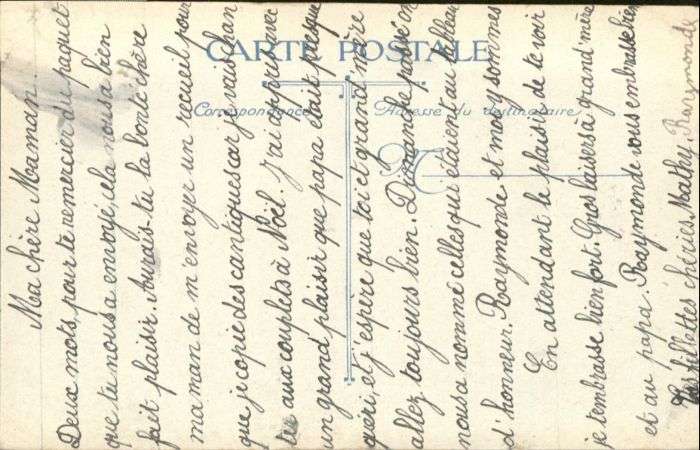 CARTE POSTALE
Correspondance
Adresse du destinataire
M
Ma chère Maman.
Deux mots, pour te remercier du paquet
que tu nous a envoyé, cela nous a bien
fait plaisir. Aurais-tu la bonté chère
maman de m'envoyer un recueil pour
que je copie des cantiques car je vais chan
ter aux couplets à Noël. J'ai appris avec
un grand plaisir que papa était presque
guéri, et j'espère que toi et grand'mère
allez toujours bien. Dimanche passé on
nous a nommé celles qui étaient au tableau
d'honneur. Raymonde et moi y sommes
En attendant le plaisir de te voir
je t'embrasse bien fort. Gros baisers à grand'mère
et au papa. Raymonde vous embrasse bien
Tes fillettes chéries Mathy. Raymonde